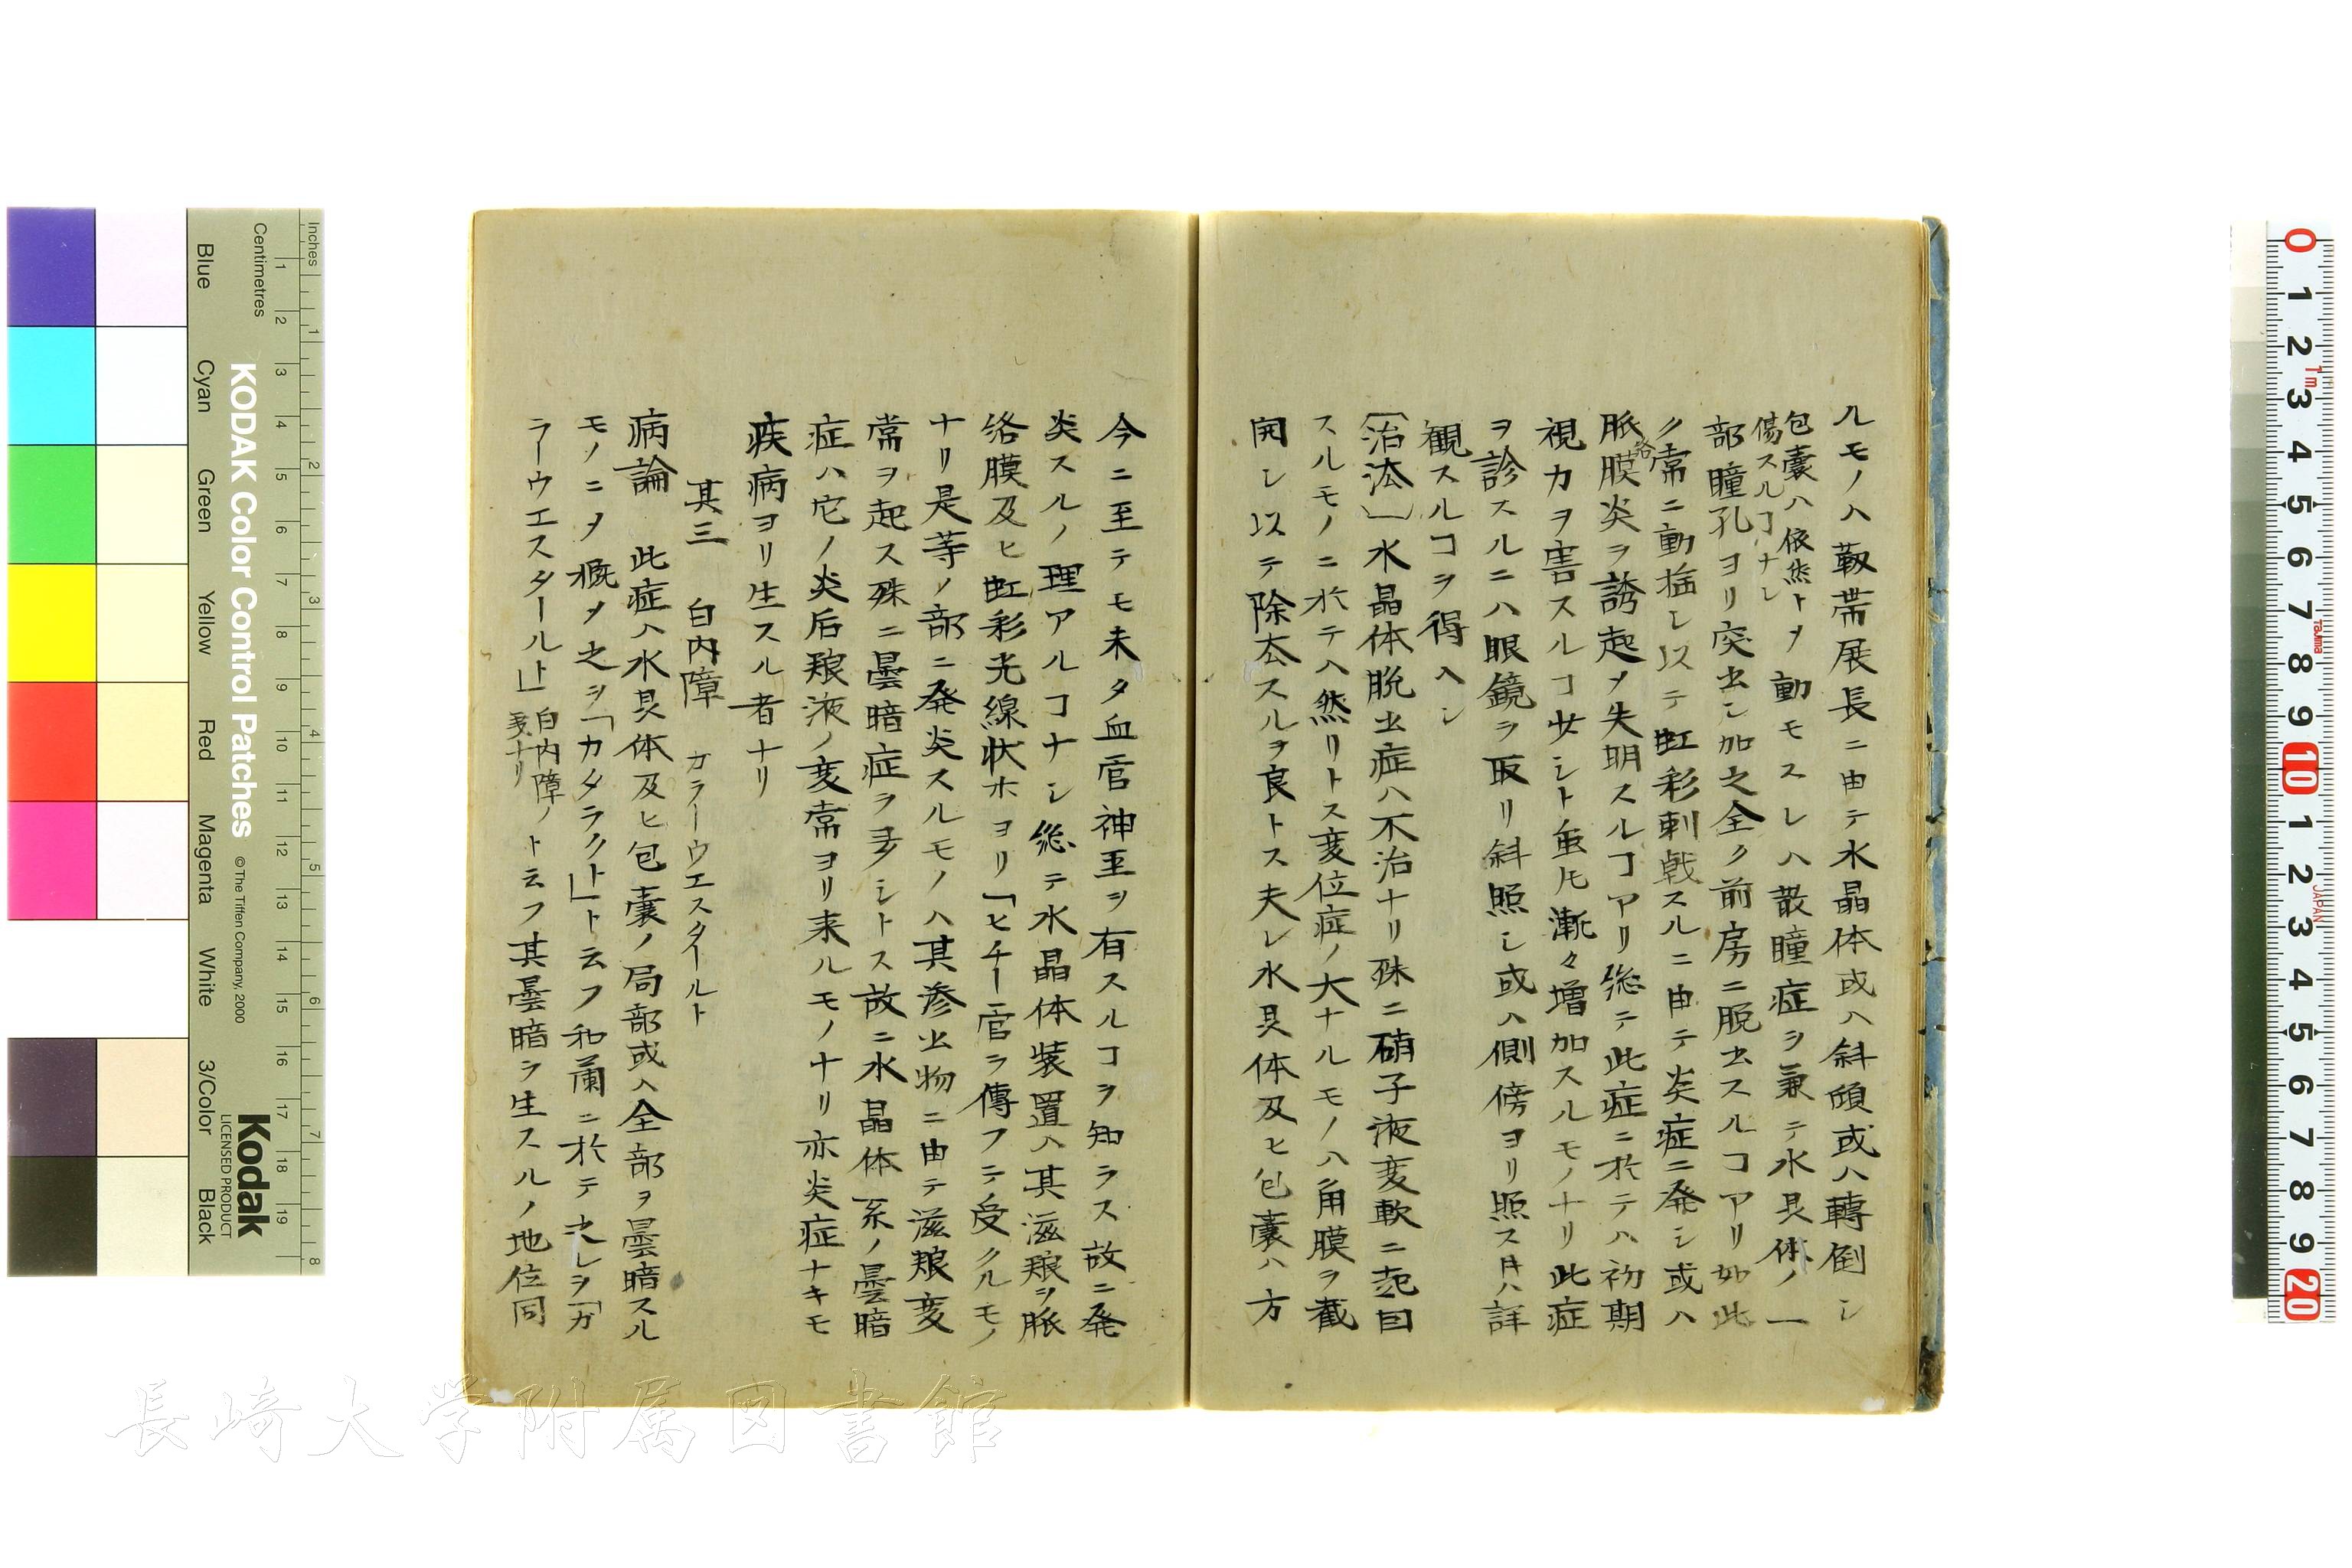 ルモノハ靱帯展長ニ由テ水晶体或ハ斜傾或ハ轉倒シ
包嚢ハ依然トメ動モスレハ散瞳症ヲ兼テ水晶体ノ一
傷スルコナシ
部瞳孔ヨリ突出シ加之全ク前房ニ脱出スルコアリ如此
ク常ニ動揺シ以テ虹彩刺戟スルニ由テ炎症ニ発シ或ハ
脈絡膜炎ヲ誘起メ失明スルコアリ総テ此症ニ於テハ初期
視力ヲ害スルコ少シト虽𪜈漸々増加スルモノナリ此症
ヲ診スルニハ眼鏡ヲ取リ斜照シ或ハ側傍ヨリ照ス𪜈ハ詳
観スルコヲ得ヘシ
〔治法〕水晶体脱出症ハ不治ナリ殊ニ硝子液変軟ニ起因
スルモノニ於テハ然リトス変位症ノ大ナルモノハ角膜ヲ截
開シ以テ除去スルヲ良トス夫レ水晶体及ヒ包嚢ハ方
今ニ至テモ未タ血管神圣ヲ有スルコヲ知ラス故ニ発
炎スルノ理アルコナシ総テ水晶体装置ハ其滋粮ヲ脈
絡膜及ヒ虹彩光線状ホヨリ「ヒチー管ヲ傳フテ受クルモノ
ナリ是等ノ部ニ発炎スルモノハ其滲出物ニ由テ滋粮変
常ヲ起ス殊ニ曇暗症ヲ多シトス故ニ水晶体系ノ曇暗
症ハ它ノ炎后粮液ノ変常ヨリ来ルモノナリ亦炎症ナキモ
疾病ヨリ生スル者ナリ
其三 白内障 ガラーウエスタールト
病論 此症ハ水晶体及ヒ包嚢ノ局部或ハ全部ヲ曇暗スル
モノニメ概メ之ヲ「カタラクト」ト云フ和蘭ニ於テ之レヲ「ガ
ラーウエスタールト」白内障ノ
義ナリ
ト云フ其曇暗ヲ生スルノ地位同
Inches
Centimetres
KODAK Color Control Patches
© The Tiffen Company, 2000
Kodak
LICENSED PRODUCT
Blue Cyan Green Yellow Red Magenta White 3/Color Black
1 2 3 4 5 6 7 8 9 10 11 12 13 14 15 16 17 18 19
1 2 3 4 5 6 7 8
0 1 2 3 4 5 6 7 8 9 10 1 2 3 4 5 6 7 8 9 20
1m
Tajima
JAPAN
長崎大学附属図書館